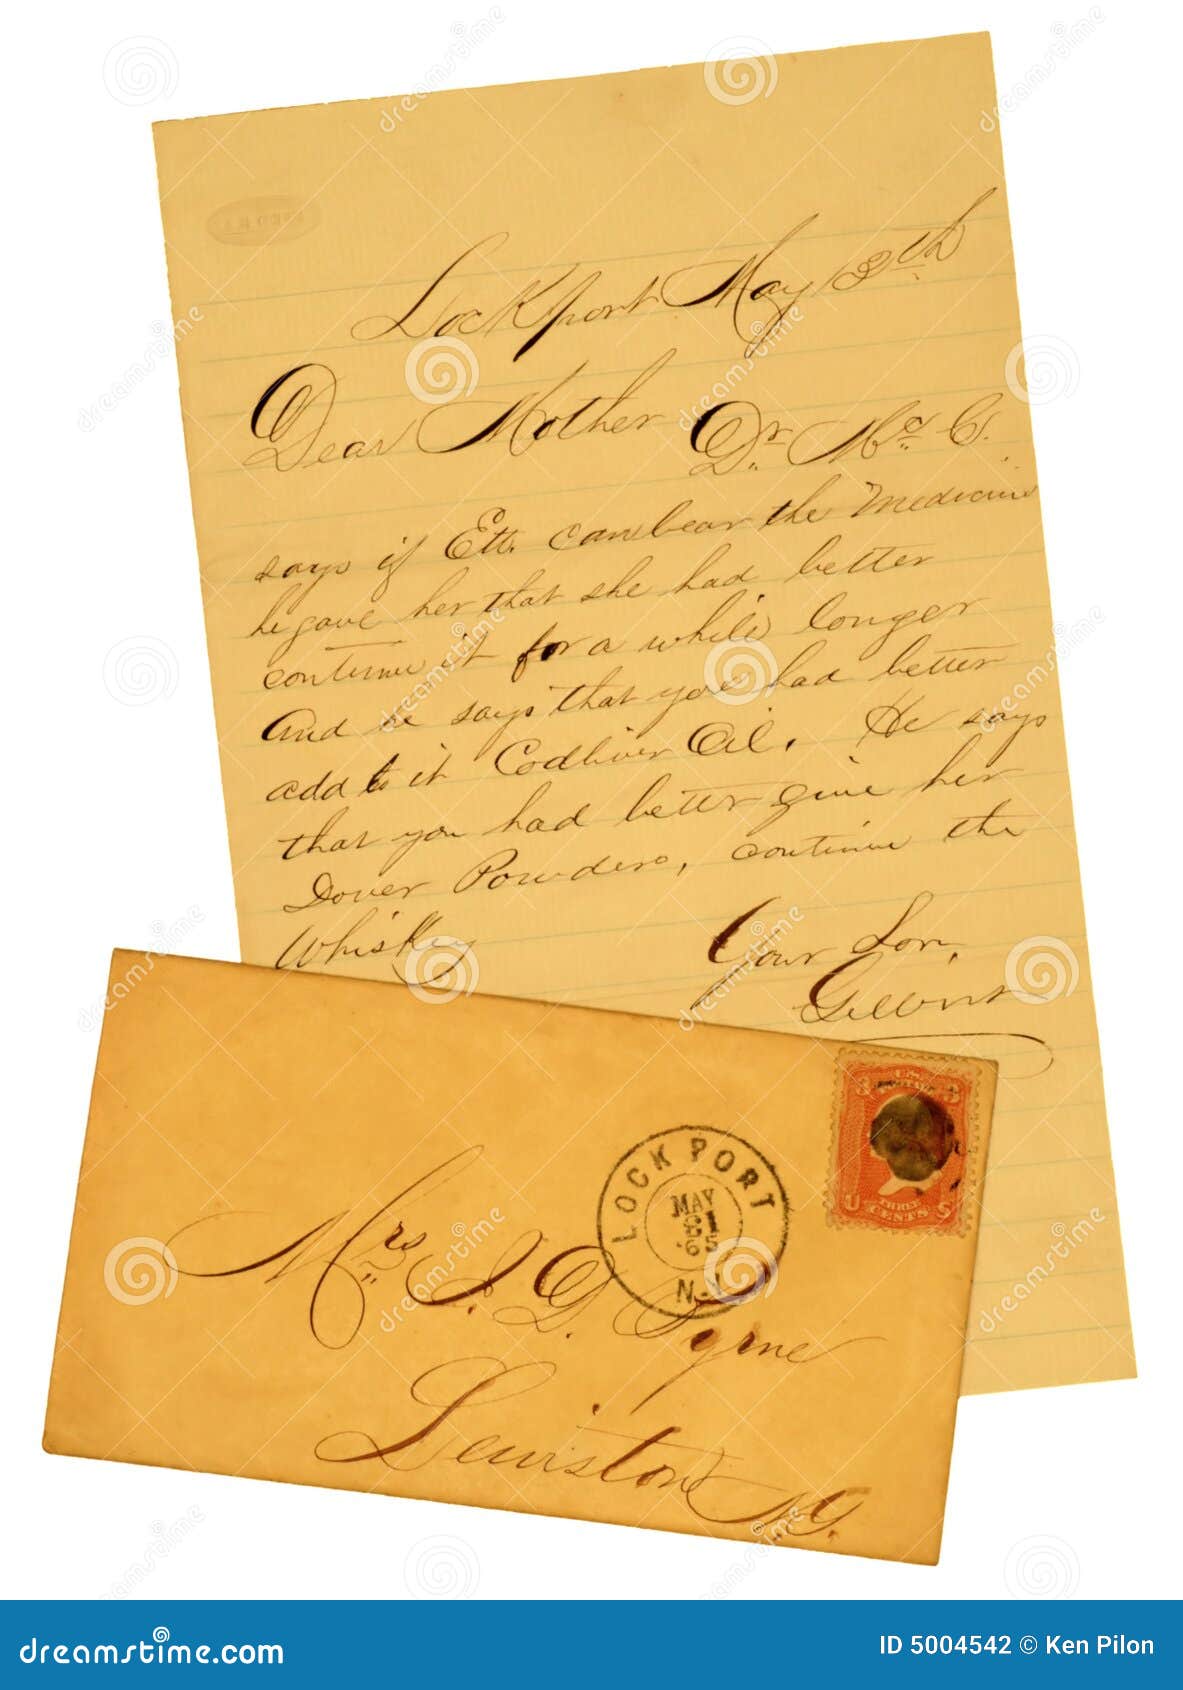 Lockport May 2th
Dear Mother Dr. Mc C.
says if Ett. can bear the Medicine
he gave her that she had better
continue it for a while longer
And he says that you had better
add to it Codliver Oil. He says
that you had better give her
Dover Powders, continue the
Whiskey
Your Son,
Gilbert
LOCKPORT
MAY
31
'65
N.Y.
U.S.
POSTAGE
3 3
U THREE S
CENTS
Mrs. S. D. Pyrne
Lewiston N.Y.
dreamstime.com
ID 5004542 © Ken Pilon